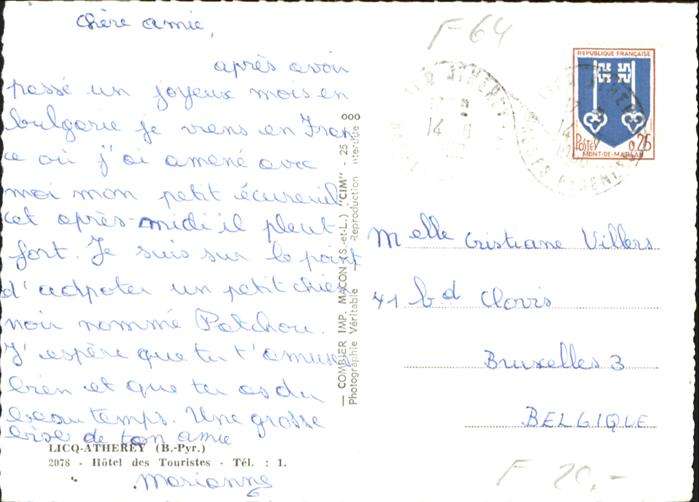 Chère amie,
après avoir
passé un joyeux mois en
bulgarie je viens en Fran
ce où j'ai amené avec
moi mon petit écureuil
cet après-midi il pleut
fort. Je suis sur le point
d'adopter un petit chien
noir nommé Patchou.
J'espère que tu t'amuses
bien et que tu as du
beau temps. Une grosse
bise de ton amie
Marianne
LICQ-ATHEREY (B.-Pyr.)
2078 - Hôtel des Touristes - Tél. : 1.
— COMBIER IMP. MACON (S.-et-L.) "CIM" : 25
Photographie Véritable — Reproduction interdite
F-64
REPUBLIQUE FRANÇAISE
POSTES 0,25
MONT-DE-MARSAN
14
Melle Cristiane Villers
41 bd Clovis
Bruxelles 3
BELGIQUE
F 20,-